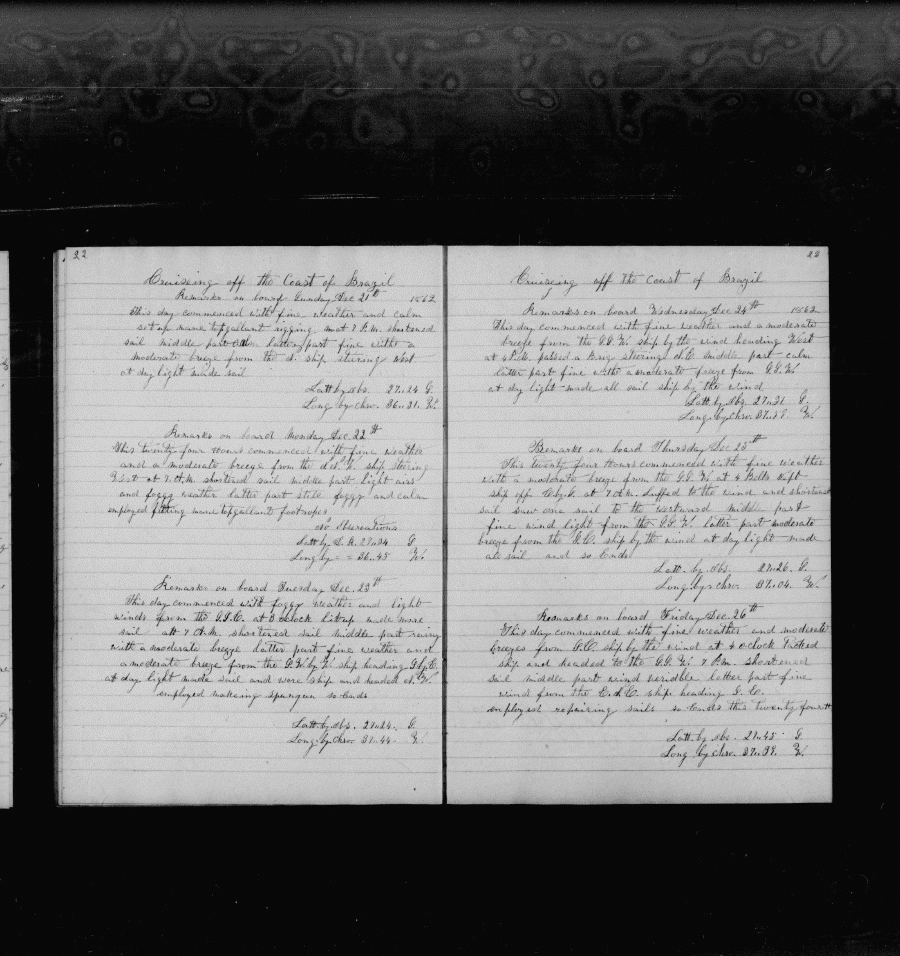 22
Cruiseing off the Coast of Brazil
Remarks on board Sunday Dec 21th 1862
This day commenced with fine weather and calm
set up mane topgallant rigging mast 7 P.M. shortened
sail middle part calm latter part fine with a
moderate breeze from the N. ship steering West
at day light made sail
Latt by obs. 27..24 S.
Long by chro. 36..31. W.
Remarks on board Monday Dec. 22th
This twenty four hours commenced with fine weather
and a moderate breeze from the N.W. ship steering
West at 7. P.M. shortened sail middle part light airs
and foggy weather latter part still foggy and calm
employed fitting mane topgallant footropes
No Observations
Latt by D.R. 27..34 S
Long by " " 36..45 W.
Remarks on board Tuesday Dec. 23th
This day commenced with foggy weather and light
winds from the S.S.E. at 3 oclock lit up made more
sail att 7 P.M. shortened sail middle part rainy
with a moderate brezze latter part fine weather and
a moderate breeze from the S.W. by W. ship heading S. by E.
at day light made sail and wore ship and headed N.W.
employed makeing spunyun so Ends
Latt by obs. 27..24. S
Long by chro. 37..44. W.
22
Cruiseing off the Coast of Brazil
Remarks on board Wednesday Dec 24th 1862
This day commenced with fine weather and a moderate
breeze from the S.S.W. ship by the wind heading West
at 4 P.M. passed a Brug steering N.E. middle part calm
latter part fine with a moderate breeze from S.S.W.
at day light made all sail ship by the wind
Latt. by Obs. 27..31 S.
Long. by Chro. 37..39. W.
Remarks on board Thursday Dec 25th
This twenty four Hours commenced with fine weather
with a moderate breeze from the S.S.W. at 4 Bells kept
ship off E. by N. at 7 P.M. luffed to the wind and shortened
sail saw one sail to the westward middle part
fine wind light from the S.S.W. latter part moderate
breeze from the S.E. ship by the wind at day light made
all sail and so Ends
Latt. by Obs. 27..26. S.
Long by chro. 37..04. W.
Remarks on board Friday Dec. 26th
This day commenced with fine weather and moderate
breezes from S.E. ship by the wind at 4 oclock Tacked
ship and headed to the S.S.W. 7 P.M. shortened
sail middle part wind veriable latter part fine
wind from the E.N.E. ship heading S.E.
employed repairing sails so Ends this twenty four H
Latt. by obs. 27..45 S
Long by chro. 37..39. W.